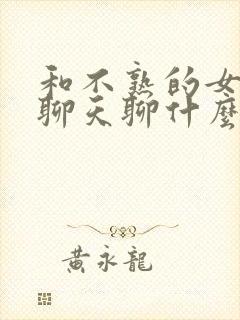 和不熟的女
聊天聊什麼
黃永龍